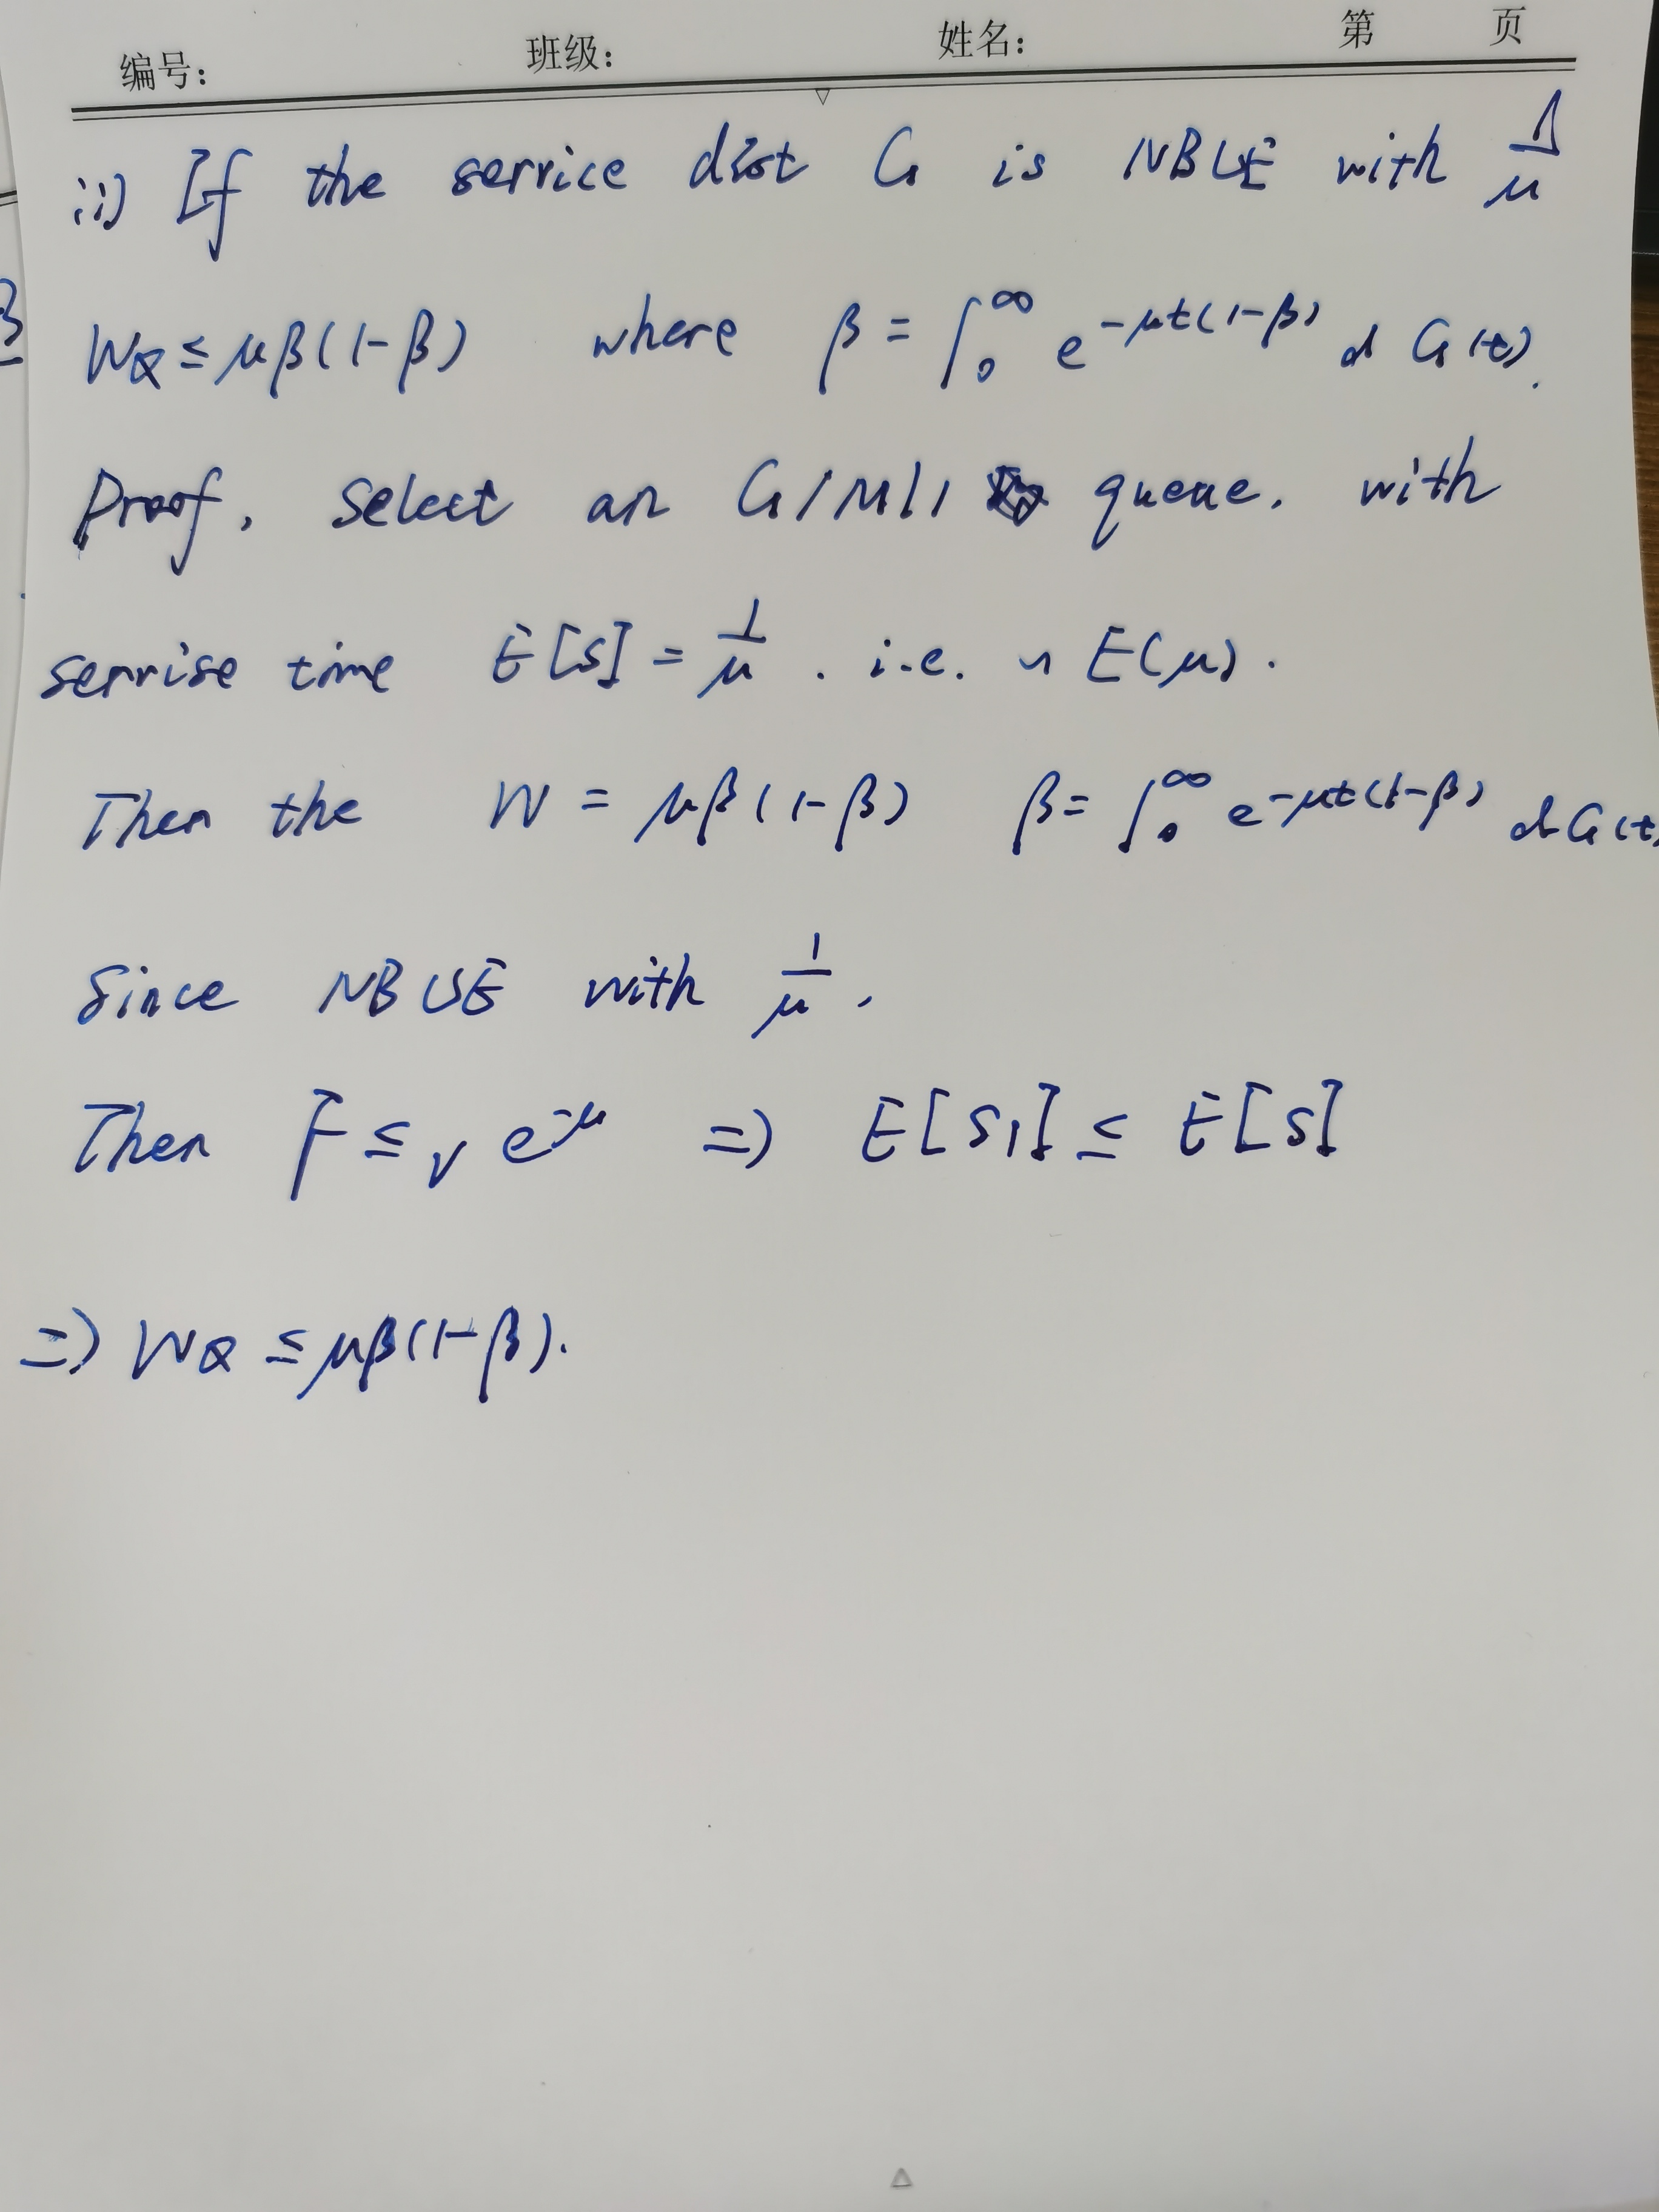 编号: 班级: 姓名: 第 页
ii) If the service dist G is NBUE with 1/μ
WQ ≤ μβ(1-β) where β = ∫₀^∞ e^{-μt(1-β)} d G(t).
Proof, Select an G/M/1 queue. with
servise time E[S] = 1/μ . i.e. ~ E(μ).
Then the W = μβ(1-β) β = ∫₀^∞ e^{-μt(1-β)} dG(t)
Since NBUE with 1/μ,
Then F ≤_v e^{-μ} => E[S1] ≤ E[S]
=> WQ ≤ μβ(1-β).